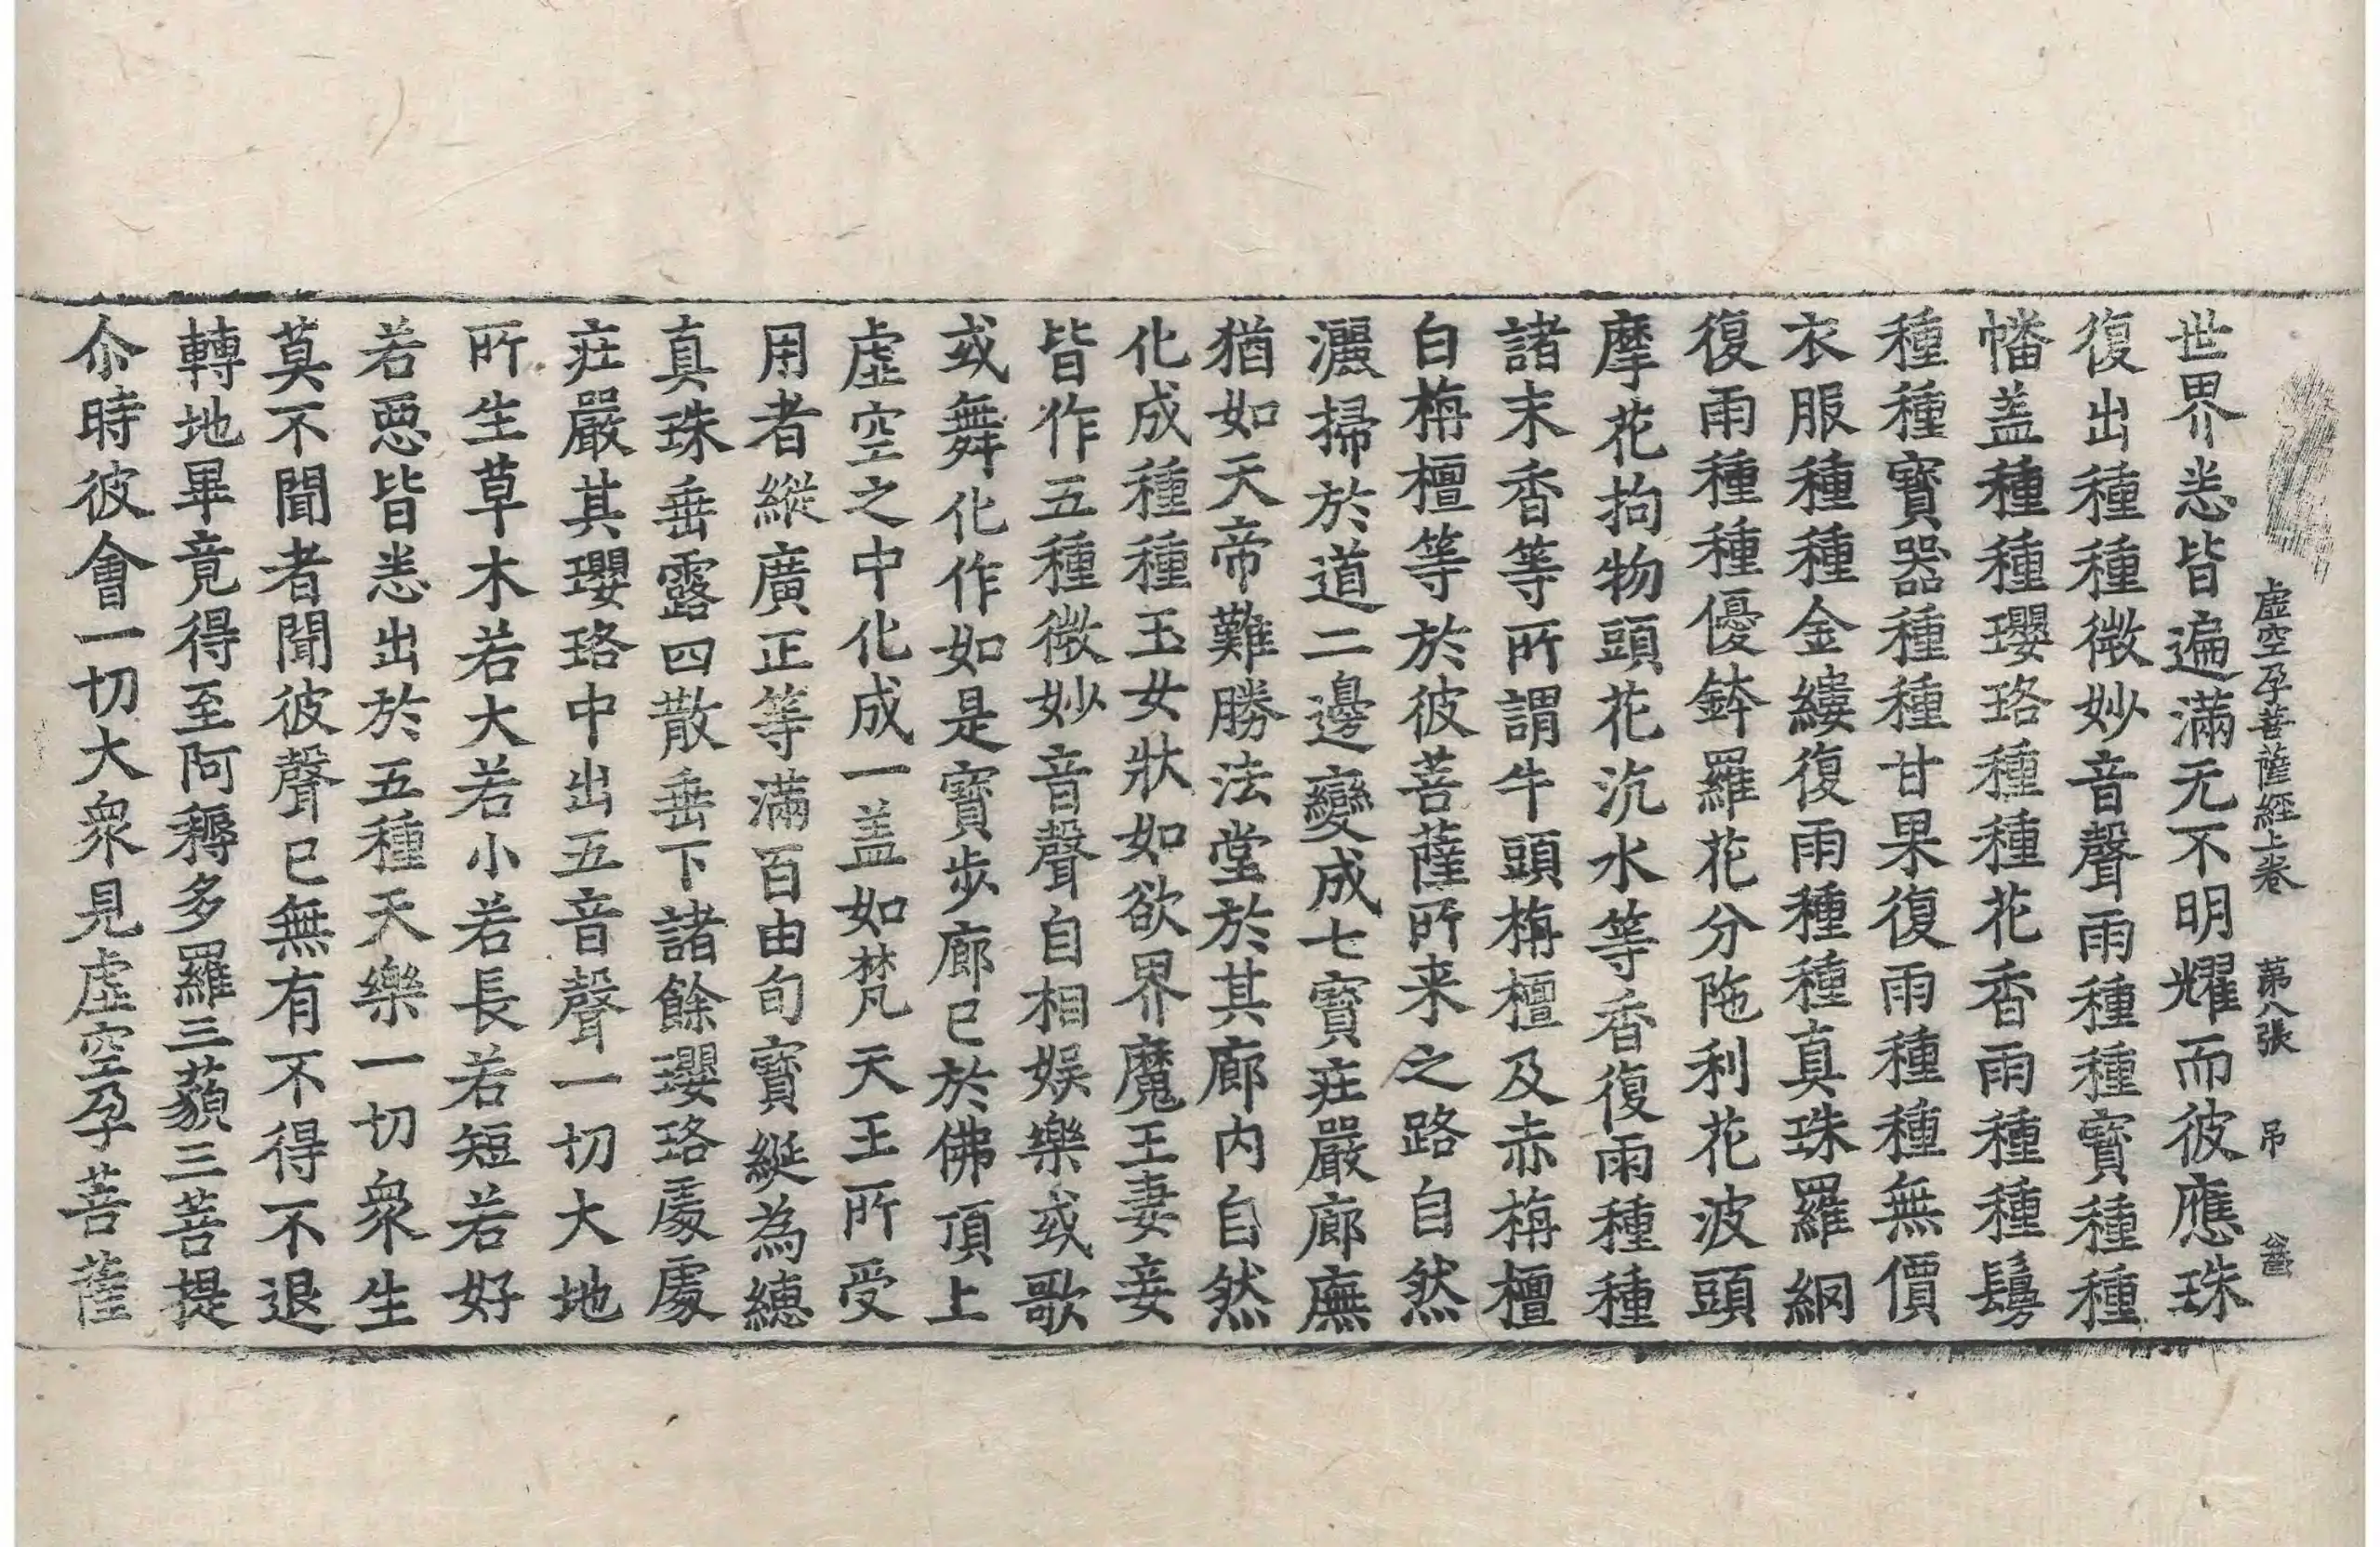 虛空孕菩薩經上卷 苐八張 吊
世界悉皆遍滿无不明耀而彼應珠
復出種種微妙音聲雨種種寳種種
幡盖種種瓔珞種種花香雨種種鬘
種種寳器種種甘果復雨種種無價
衣服種種金縷復雨種種真珠羅網
復雨種種優鉢羅花分陁利花波頭
摩花拘物頭花沉水等香復雨種種
諸末香等所謂牛頭栴檀及赤栴檀
白栴檀等於彼菩薩所来之路自然
灑掃於道二邊變成七寳莊嚴廊廡
猶如天帝難勝法堂於其廊内自然
化成種種玉女狀如欲界魔王妻妾
皆作五種微妙音聲自相娛樂或歌
或舞化作如是寳步廊已於佛頂上
虛空之中化成一盖如梵天王所受
用者縱廣正等滿百由旬寳綖為繐
真珠垂露四散垂下諸餘瓔珞處處
莊嚴其瓔珞中出五音聲一切大地
所生草木若大若小若長若短若好
若惡皆悉出於五種天樂一切衆生
莫不聞者聞彼聲已無有不得不退
轉地畢竟得至阿耨多羅三藐三菩提
尒時彼會一切大衆見虛空孕菩薩